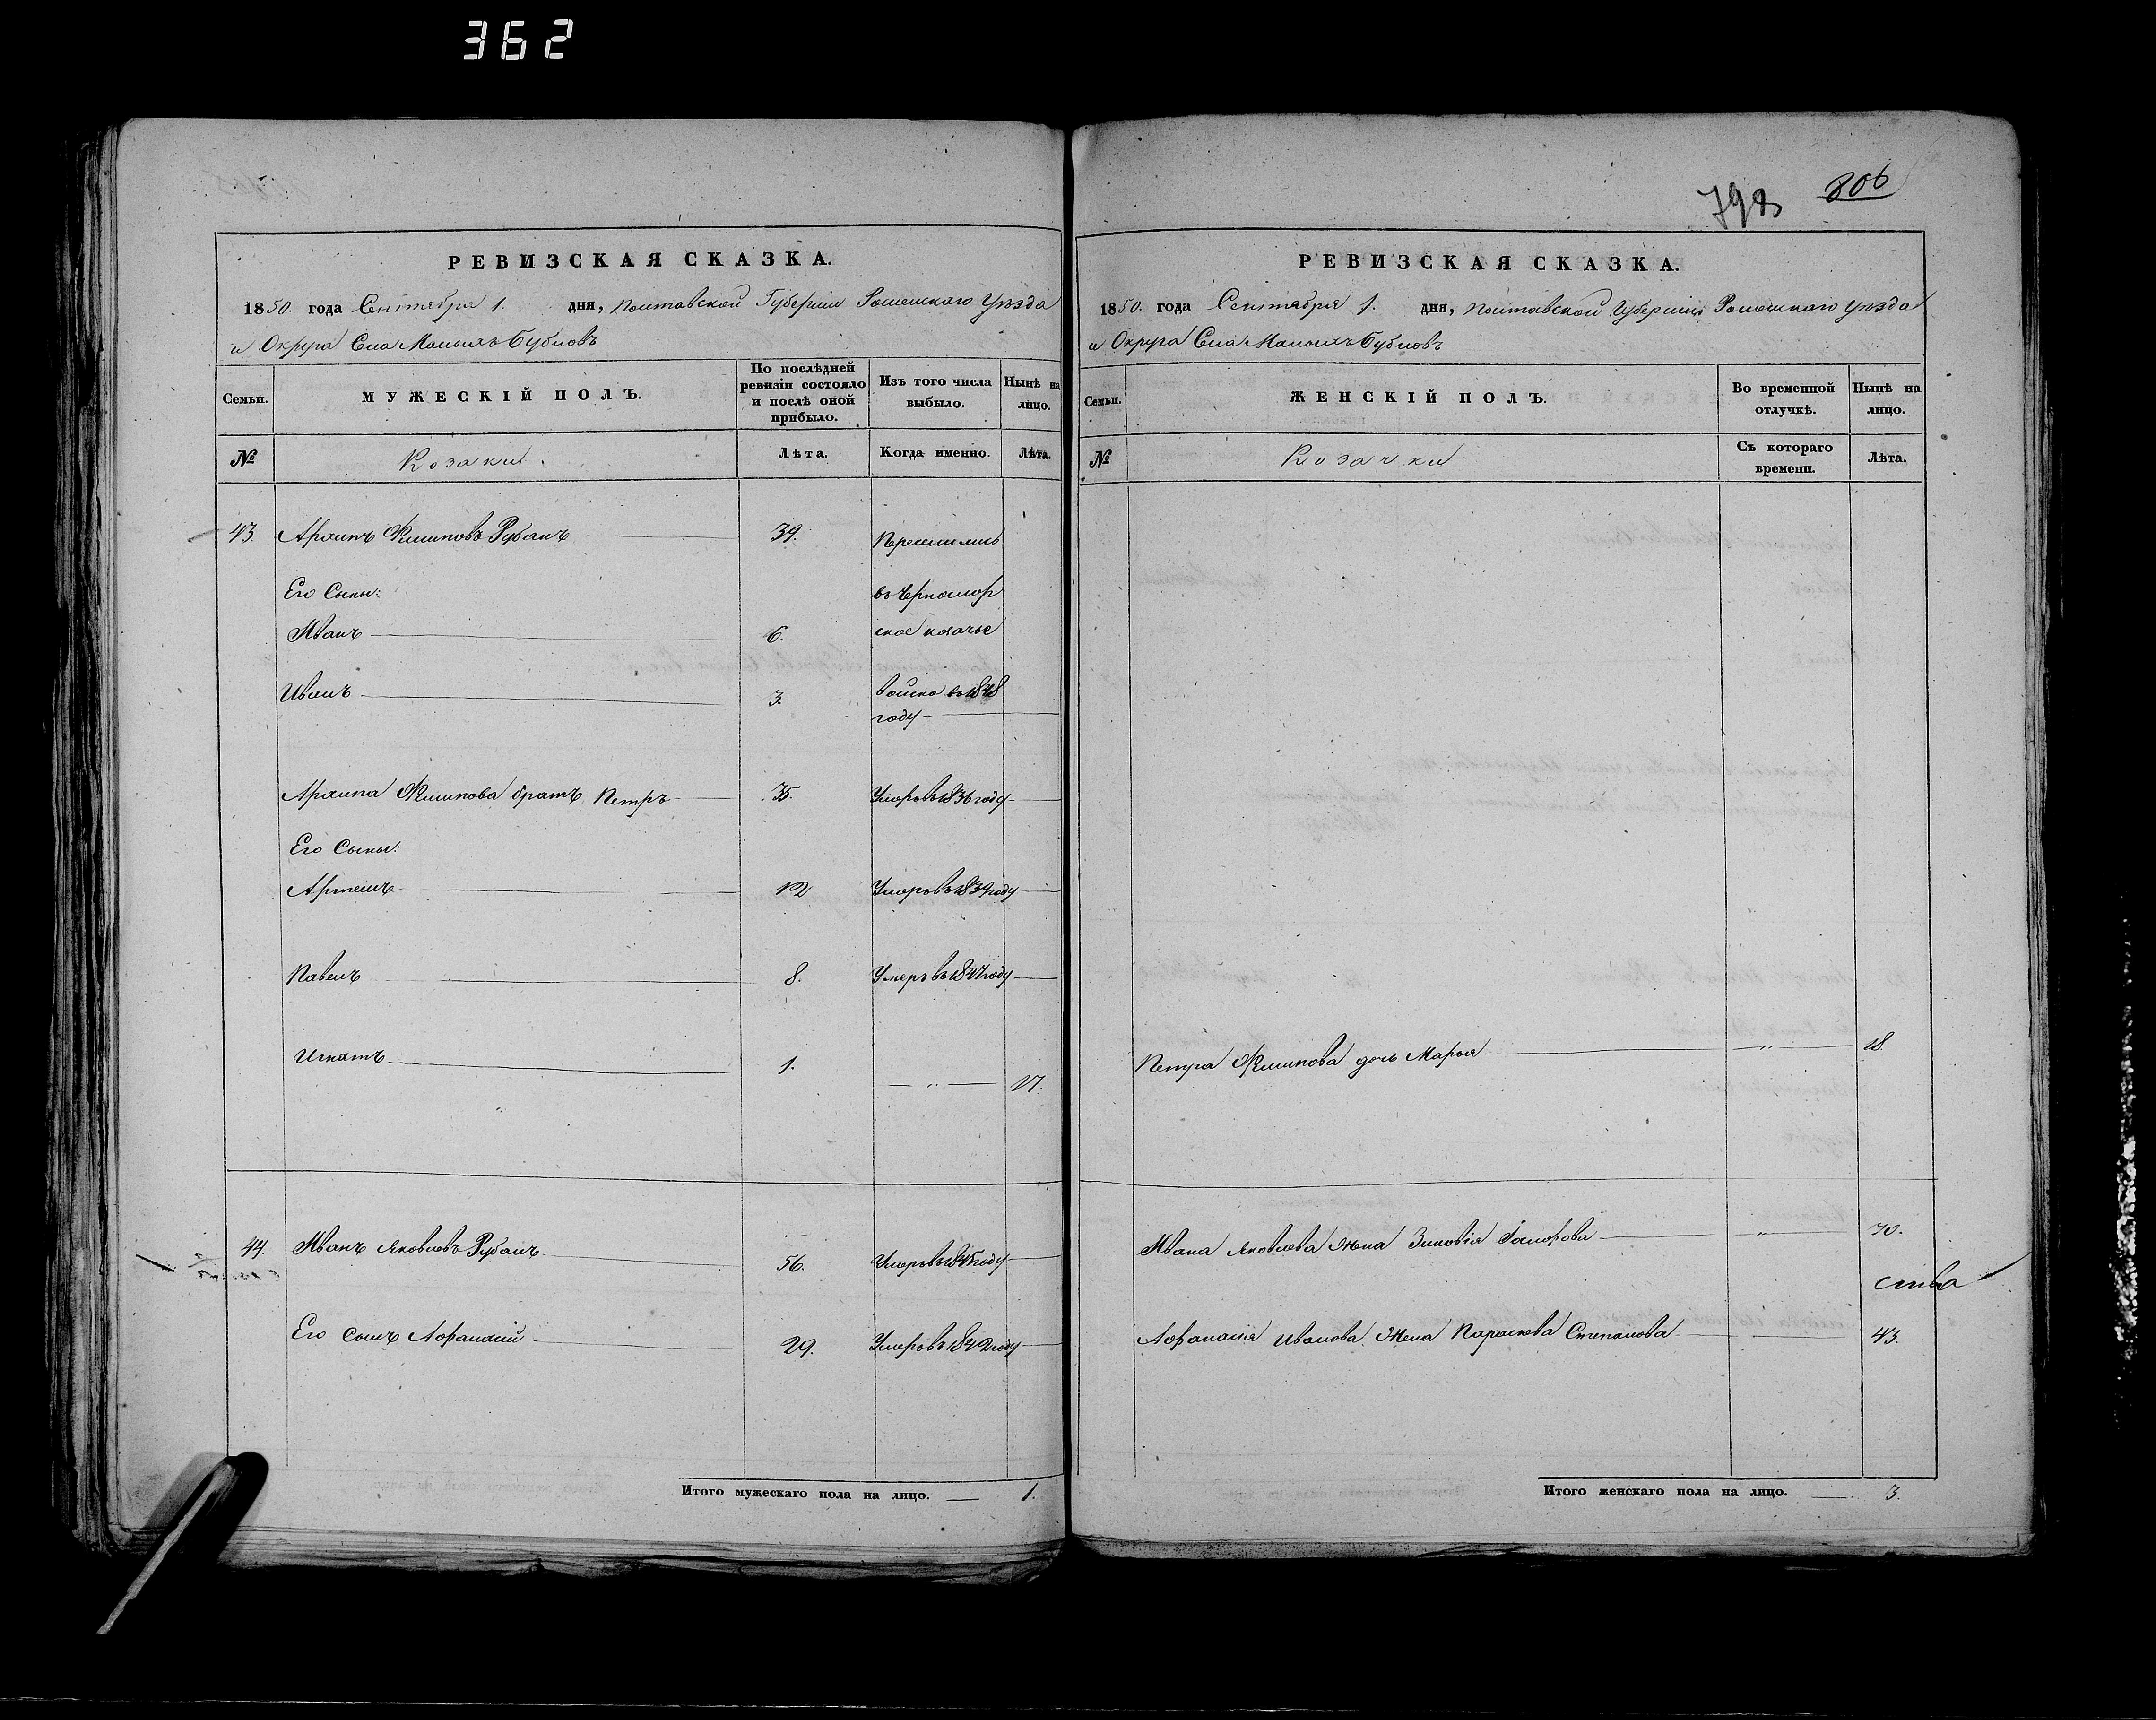 362
798 806
РЕВИЗСКАЯ СКАЗКА.
1850. года Сентября 1. дня, Полтавской Губерніи Роменскаго Уѣзда
и Округа Села Малыхъ Бубновъ
Семьи.
МУЖЕСКІЙ ПОЛЪ.
По послѣдней ревизіи состояло и послѣ оной прибыло.
Изъ того числа выбыло.
Нынѣ на лицо.
№
Козаки
Лѣта.
Когда именно.
Лѣта.
43. Архипъ Филиповъ Рубанъ 39. Переселились
Его Сыны: въ Черномор
Иванъ 6. ское козачье
Иванъ 3. войско въ 1848
году
Архипа Филипова братъ Петръ 35. Умеръ въ 1836 году
Его Сыны:
Артемъ 12 Умеръ въ 1839 году
Павелъ 8. Умеръ въ 1847 году
Игнатъ 1. — " — 17.
44. Иванъ Яковлевъ Рубанъ 56. Умеръ въ 1845 году
Его сынъ Афанасій 29. Умеръ въ 1842 году
Итого мужескаго пола на лицо. — 1.
РЕВИЗСКАЯ СКАЗКА.
1850. года Сентября 1. дня, Полтавской Губерніи Роменскаго Уѣзда
и Округа Села Малыхъ Бубновъ
Семьи.
ЖЕНСКІЙ ПОЛЪ.
Во временной отлучкѣ.
Нынѣ на лицо.
№
Козачки
Съ котораго времени.
Лѣта.
Петра Филипова дочь Марья — " — 18.
Ивана Яковлева жена Зиновія Сидорова — " — 70.
Афанасія Иванова жена Параскева Степанова — 43.
Итого женскаго пола на лицо. — 3.